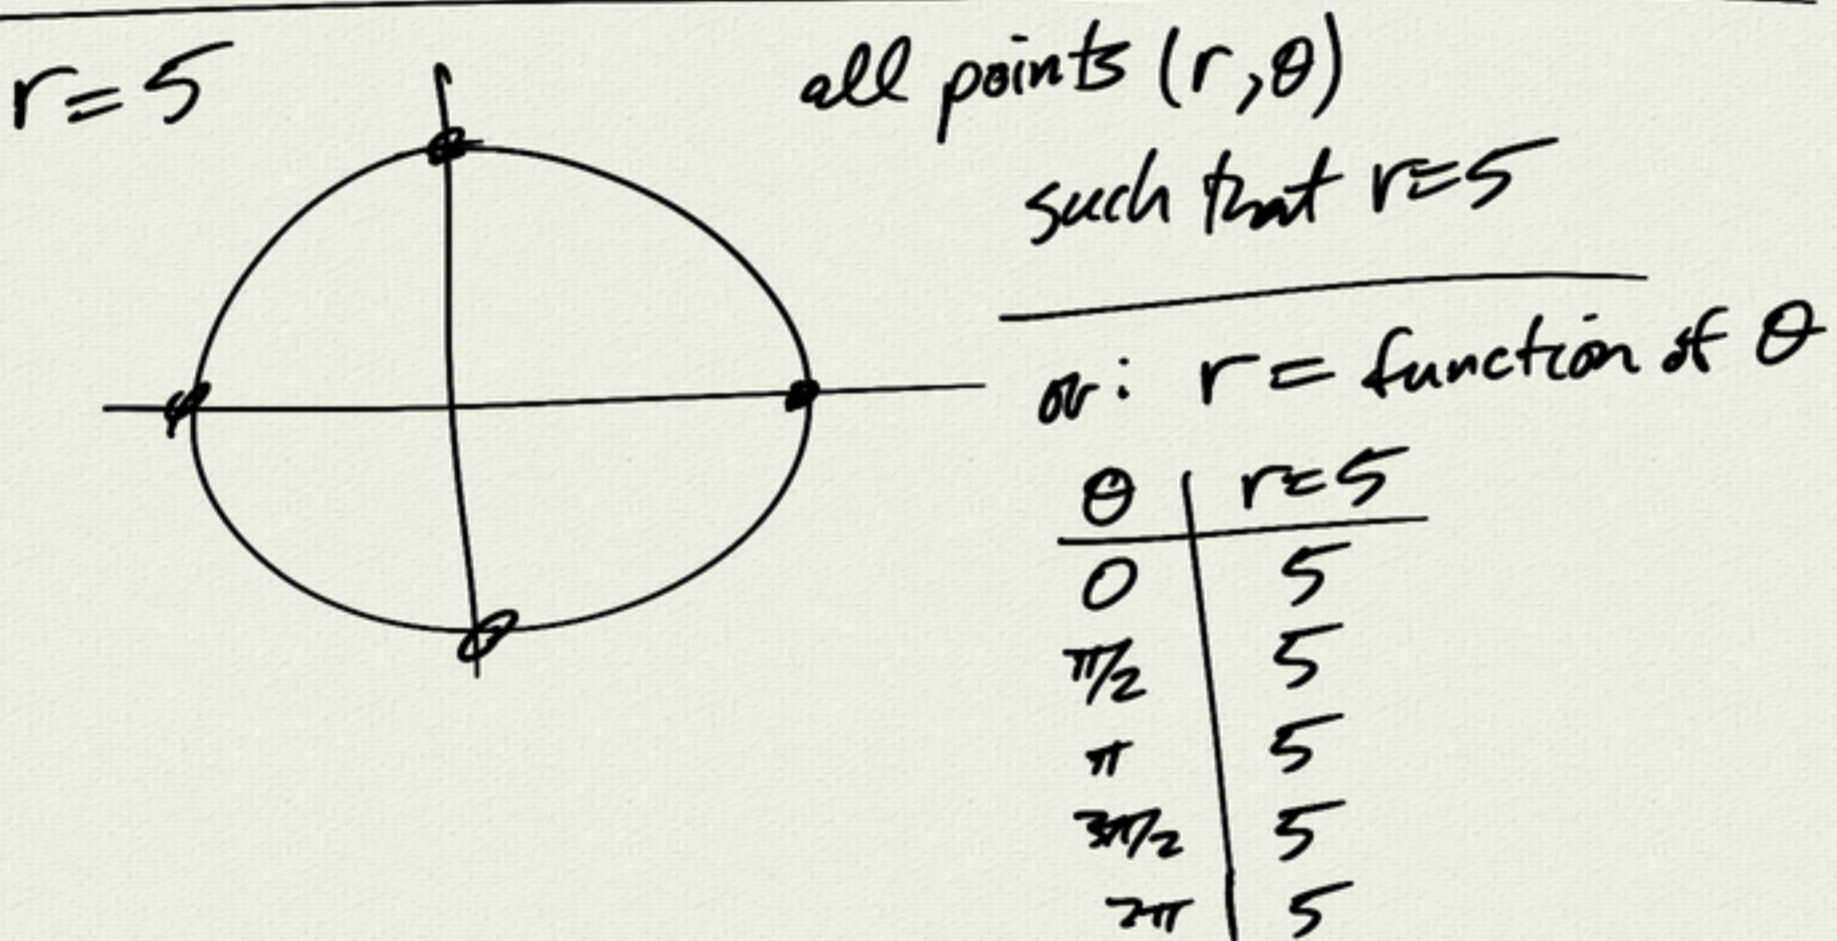 r=5
all points (r,θ)
such that r=5
or: r = function of θ
θ r=5
0 5
π/2 5
π 5
3π/2 5
2π 5